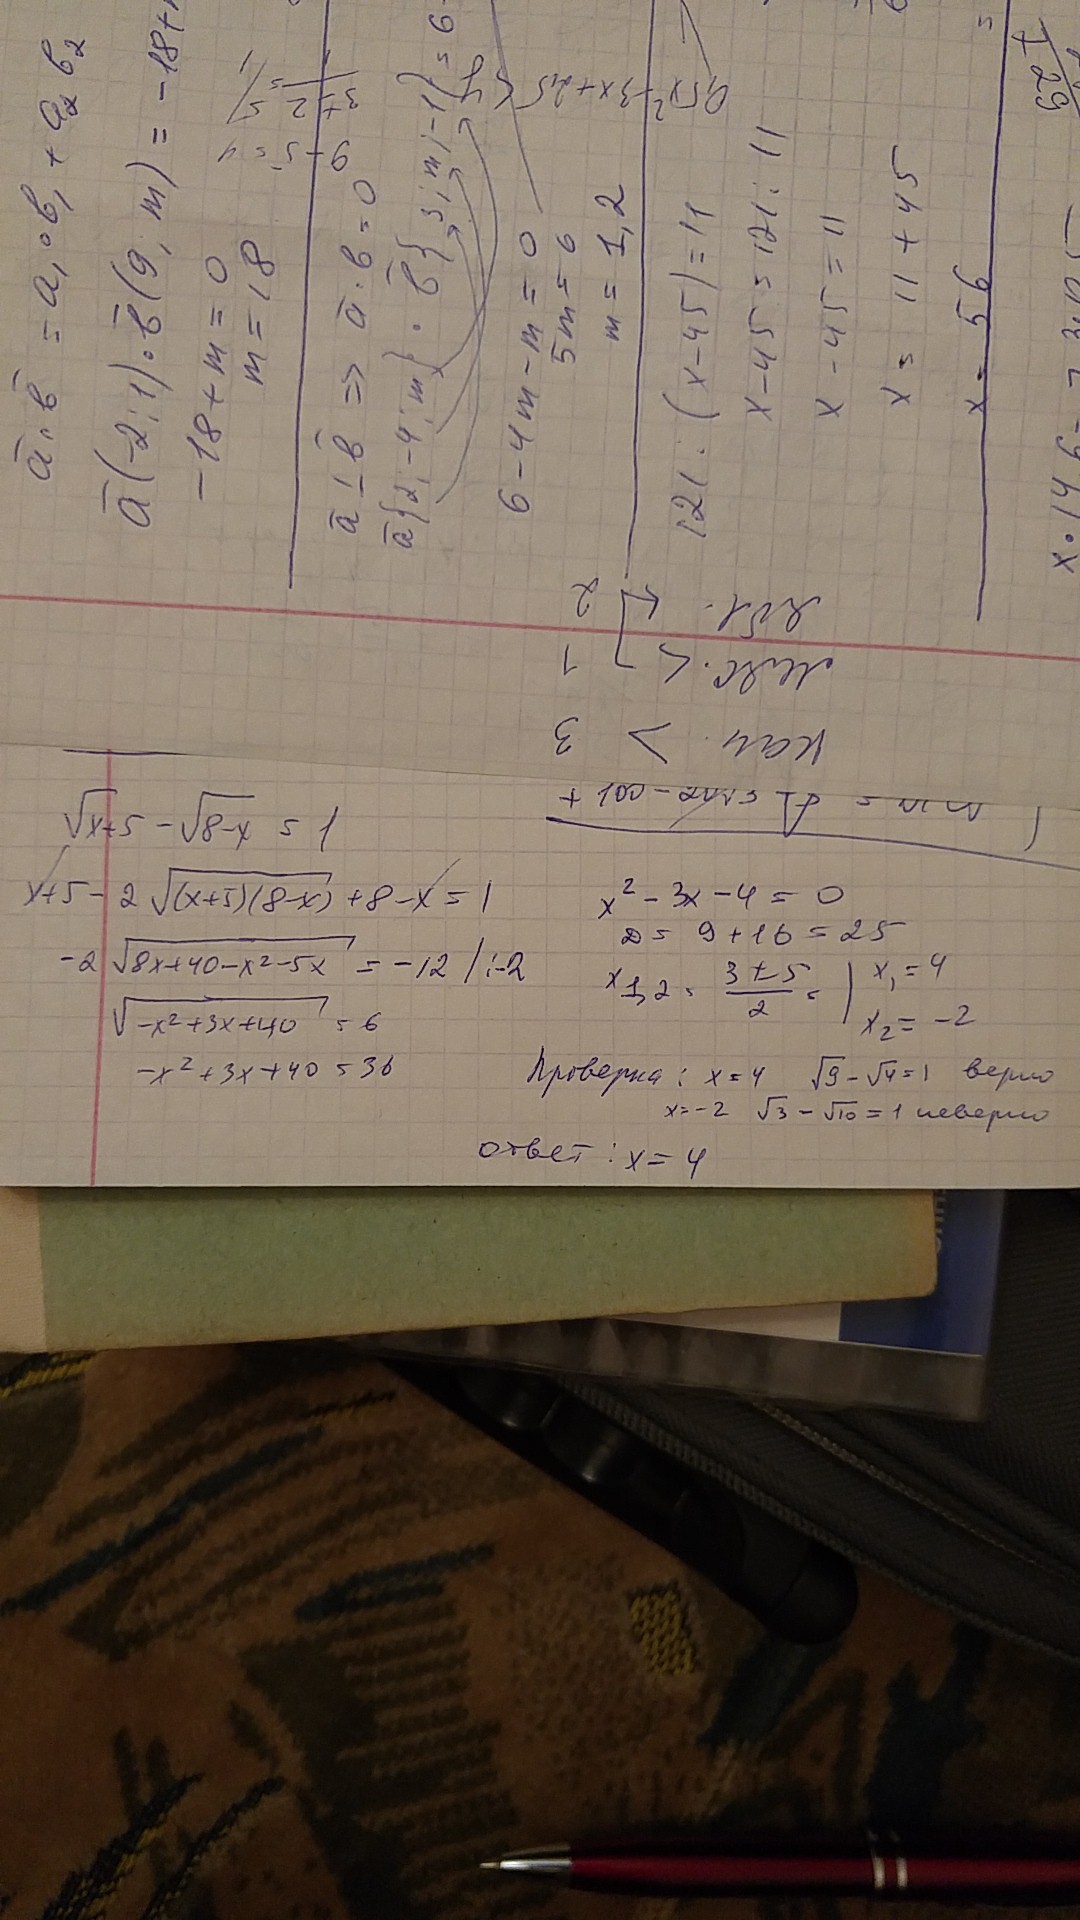 a̅·b̅ = a₁·b₁ + a₂b₂
a̅(-2;1)·b̅(9;m) = -18+
-18+m=0
m=18
a̅⊥b̅ => a̅·b̅=0
a̅{2;-4;m}·b̅{3;m;-1}=6-
6-4m-m=0
5m=6
m=1,2
121:(x-45)=11
x-45=121:11
x-45=11
x=11+45
x=56
9-5=4
3±2
0,5x²-3x+2,5<
29
кан. > 3
< 1
2
√x+5 - √8-x = 1
x+5-2√(x+5)(8-x) +8-x=1
-2√8x+40-x²-5x = -12 /:-2
√-x²+3x+40 = 6
-x²+3x+40=36
x²-3x-4=0
D= 9+16=25
x1,2= 3±5/2 = | x₁=4
x₂=-2
Проверка: x=4 √9-√4=1 верно
x=-2 √3-√10=1 неверно
ответ: x=4